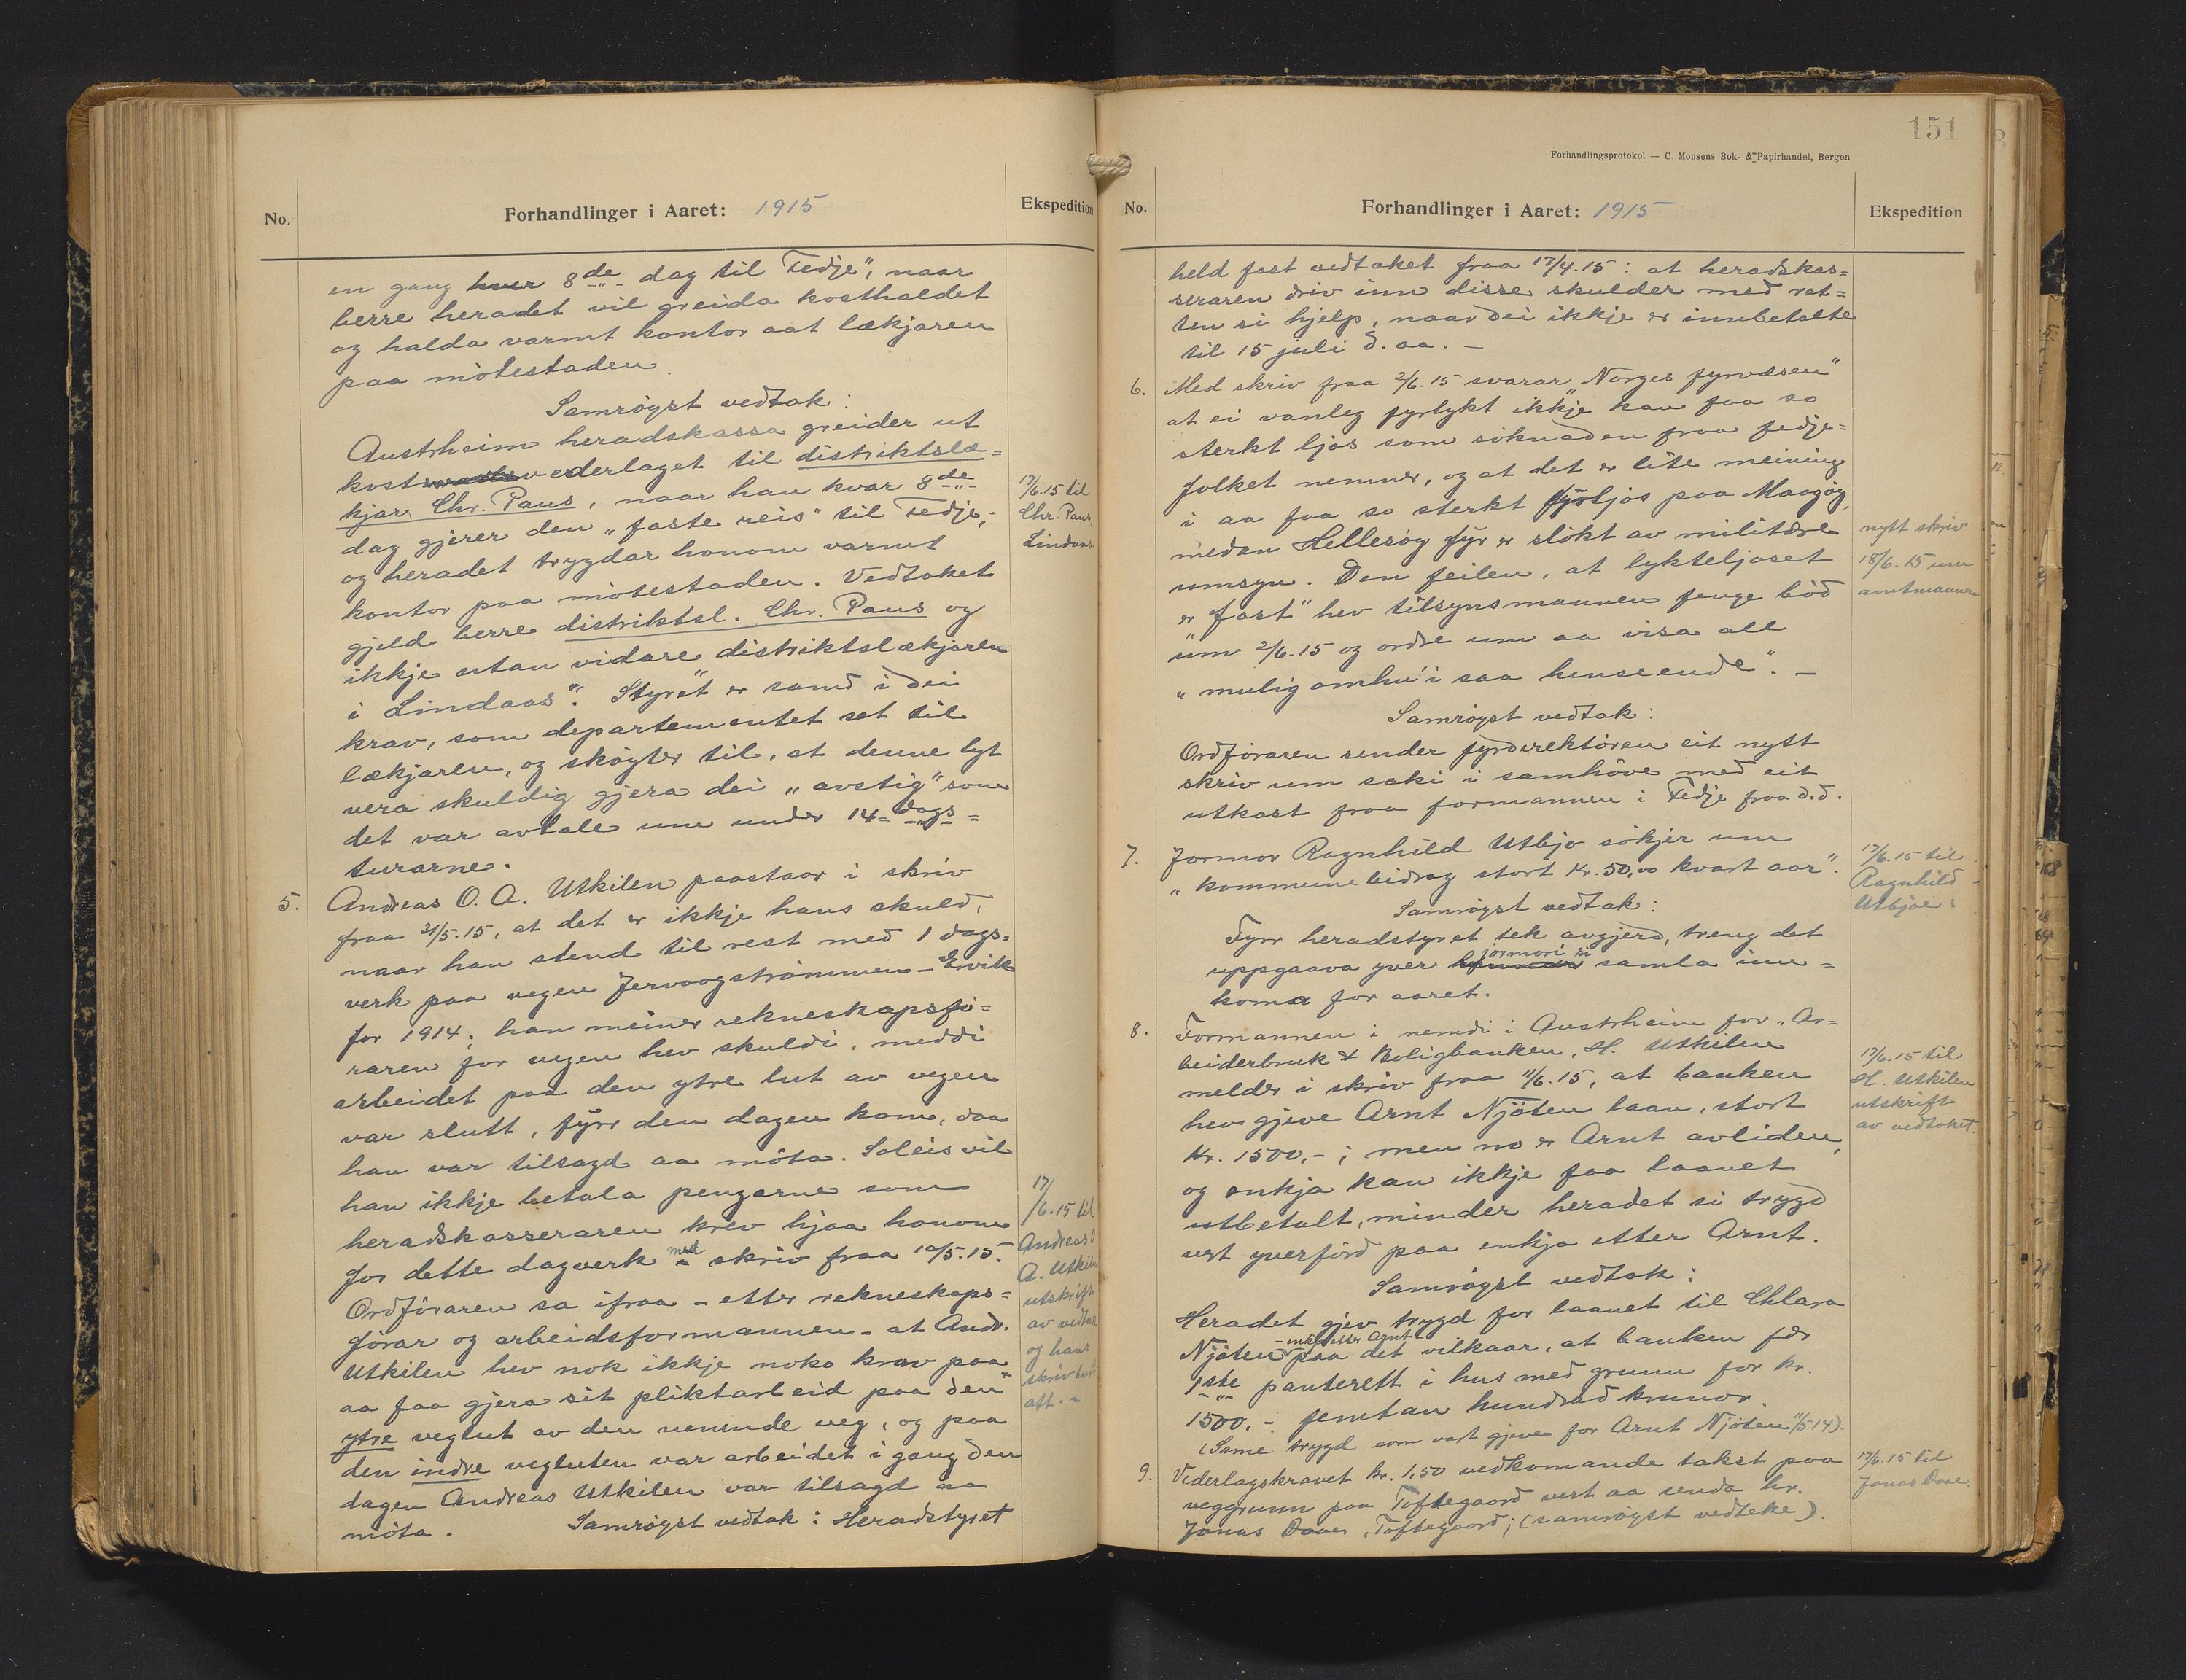 No.
Forhandlinger i Aaret: 1915
Ekspedition
en gang hver 8de dag til Fedje", naar
berre heradet vil greida kosthaldet
og halda varmt kontor aat lækjaren
paa mötestaden.
Samröyst vedtak:
Austrheim heradskassa greider ut
kostvederlaget til distriktslæ=
kjar Chr. Paus, naar han kvar 8de
dag gjerer den „faste reis" til Fedje,
og heradet trygdar honom varmt
kontor paa mötestaden. Vedtaket
gjeld berre distriktsl. Chr. Paus og
ikkje utan vidare distriktslækjaren
i Lindaas". Styret er samd i dei
krav, som departementet set til
lækjaren, og sköyter til, at denne lyt
vera skuldig gjera dei „avstig" som
det var avtale um under 14-dags=
turarne.
17/6.15 til
Chr. Paus,
Lindaas.
5. Andreas O. A. Utkilen paastaar i skriv
fraa 31/5.15, at det er ikkje hans skuld,
naar han stend til rest med 1 dags=
verk paa vegen Jervaagströmmen-Ervik
for 1914; han meiner rekneskapsfö=
raren for vegen hev skuldi, meddi
arbeidet paa den ytre lut av vegen
var slutt, fyrr den dagen kom, daa
han var tilsagd aa möta. Soleis vil
han ikkje betala pengarne som
heradskasseraren krev hjaa honom
for dette dagverk med skriv fraa 10/5.15.
Ordföraren sa ifraa - etter rekneskaps=
förar og arbeidsformannen - at Andr.
Utkilen hev nok ikkje noko krav paa
aa faa gjera sit pliktarbeid paa den
ytre veglut av den nemnde veg, og paa
den indre vegluten var arbeidet i gang den
dagen Andreas Utkilen var tilsagd aa
möta. Samröyst vedtak: Heradstyret
17/6.15 til
Andreas O.
A. Utkilen
utskrift
av vedtak
og hans
skriv
att.-
151
Forhandlingsprotokol — C. Monsens Bok- & Papirhandel, Bergen
No.
Forhandlinger i Aaret: 1915
Ekspedition
held fast vedtaket fraa 17/4.15: at heradskas=
seraren driv inn disse skulder med ret=
ten si hjelp, naar dei ikkje er innbetalte
til 15 juli d. aa. -
6. Med skriv fraa 2/6.15 svarar „Norges fyrvæsen"
at ei vanleg fyrlykt ikkje kan faa so
sterkt ljos som söknaden fraa Fedje=
folket nemner, og at det er lite meining
i aa faa so sterkt fyrljos paa Maagöy,
medan Hellesöy fyr er slökt av militære
umsyn. Den feilen, at lykteljoset
er „fast" hev tilsynsmannen fenge böd
um 2/6.15 og ordre um aa visa all
„mulig omhu i saa henseende". -
Samröyst vedtak:
Ordföraren sender fyrdirektören eit nytt
skriv um saki i samhöve med eit
utkast fraa formannen i Fedje fraa d.d.
nytt skriv
18/6.15 um
amtmannen
7. Jormor Ragnhild Utbjo sökjer um
„kommunebidrag stort Kr. 50,00 kvart aar".
Samröyst vedtak:
Fyrr heradstyret tek avgjerd, treng det
uppgaava yver jormori si samla inn=
koma for aaret.
17/6.15 til
Ragnhild
Utbjoe.
8. Formannen i nemdi i Austrheim for „Ar=
beiderbruk & Boligbanken, H. Utkilen
melder i skriv fraa 11/6.15, at banken
hev gjeve Arnt Njöten laan, stort
Kr. 1500,- ; men no er Arnt avliden,
og enkja kan ikkje faa laanet
utbetalt, minder heradet si trygd
vert yverförd paa enkja etter Arnt.
Samröyst vedtak:
Heradet gjev trygd for laanet til Chlara
Njöten -enkja etter Arnt- paa det vilkaar, at banken fær
1ste panterett i hus med grunn for kr.
1500,- femtan hundrad krunor.
(Same trygd som vart gjeve for Arnt Njöten 11/5.14).
17/6.15 til
H. Utkilen
utskrift
av vedtaket.
9. Vederlagskravet kr. 1,50 vedkomande takst paa
veggrunn paa Toftegaard vert aa senda hr.
Jonas Daae, Toftegaard; (samröyst vedteke).
17/6.15 til
Jonas Daae.